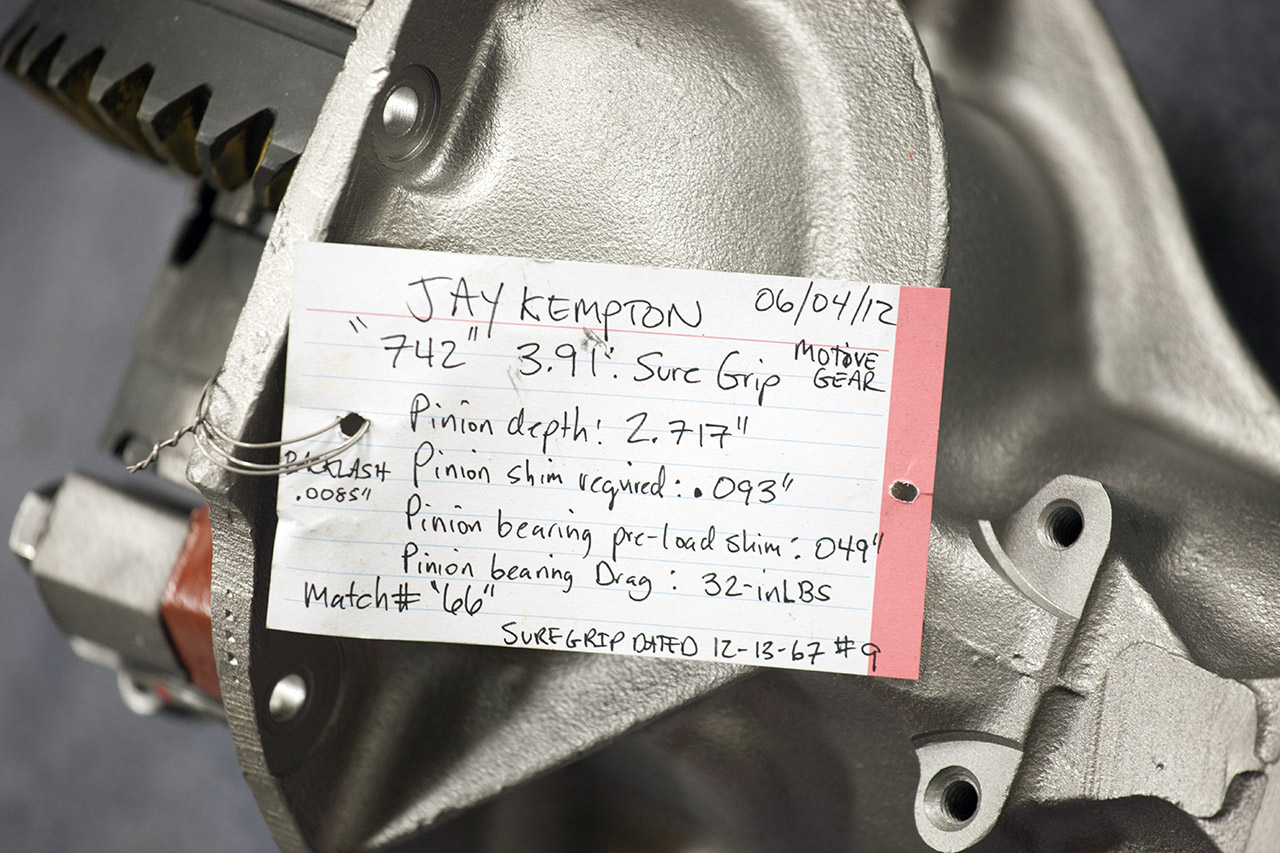 JAY KEMPTON 06/04/12
"742" 3.91: Sure Grip MOTIVE GEAR
Pinion depth: 2.717"
BACKLASH .0085"
Pinion shim required: .093"
Pinion bearing pre-load shim: 049"
Pinion bearing Drag: 32-inLBS
Match# "66"
SURE GRIP DATED 12-13-67 #9